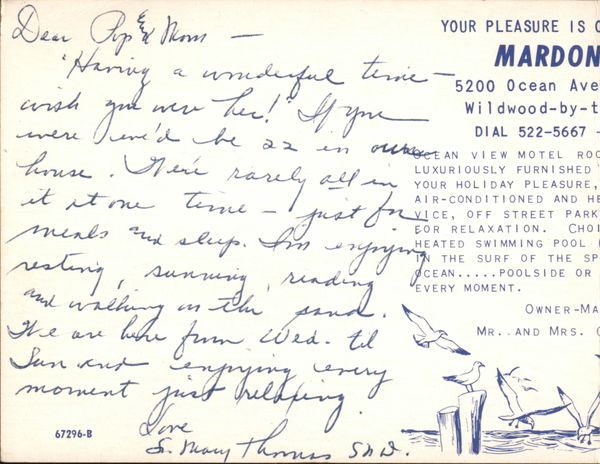 Dear Pop and Mom —
"Having a wonderful time —
wish you were her!" If you
were we'd be 22 in our
house. We're rarely all in
it at one time — just for
meals and sleep. I'm enjoying
resting, sunning, reading
and walking in the sand.
We are here from Wed. til
Sun and enjoying every
moment just relaxing.
Love
Sr. Mary Thomas SND.
67296-B
YOUR PLEASURE IS O
MARDON
5200 Ocean Ave
Wildwood-by-t
DIAL 522-5667 -
OCEAN VIEW MOTEL ROO
LUXURIOUSLY FURNISHED
YOUR HOLIDAY PLEASURE,
AIR-CONDITIONED AND HE
VICE, OFF STREET PARK
FOR RELAXATION. CHOI
HEATED SWIMMING POOL
IN THE SURF OF THE SP
OCEAN.....POOLSIDE OR
EVERY MOMENT.
OWNER-MA
MR. AND MRS.